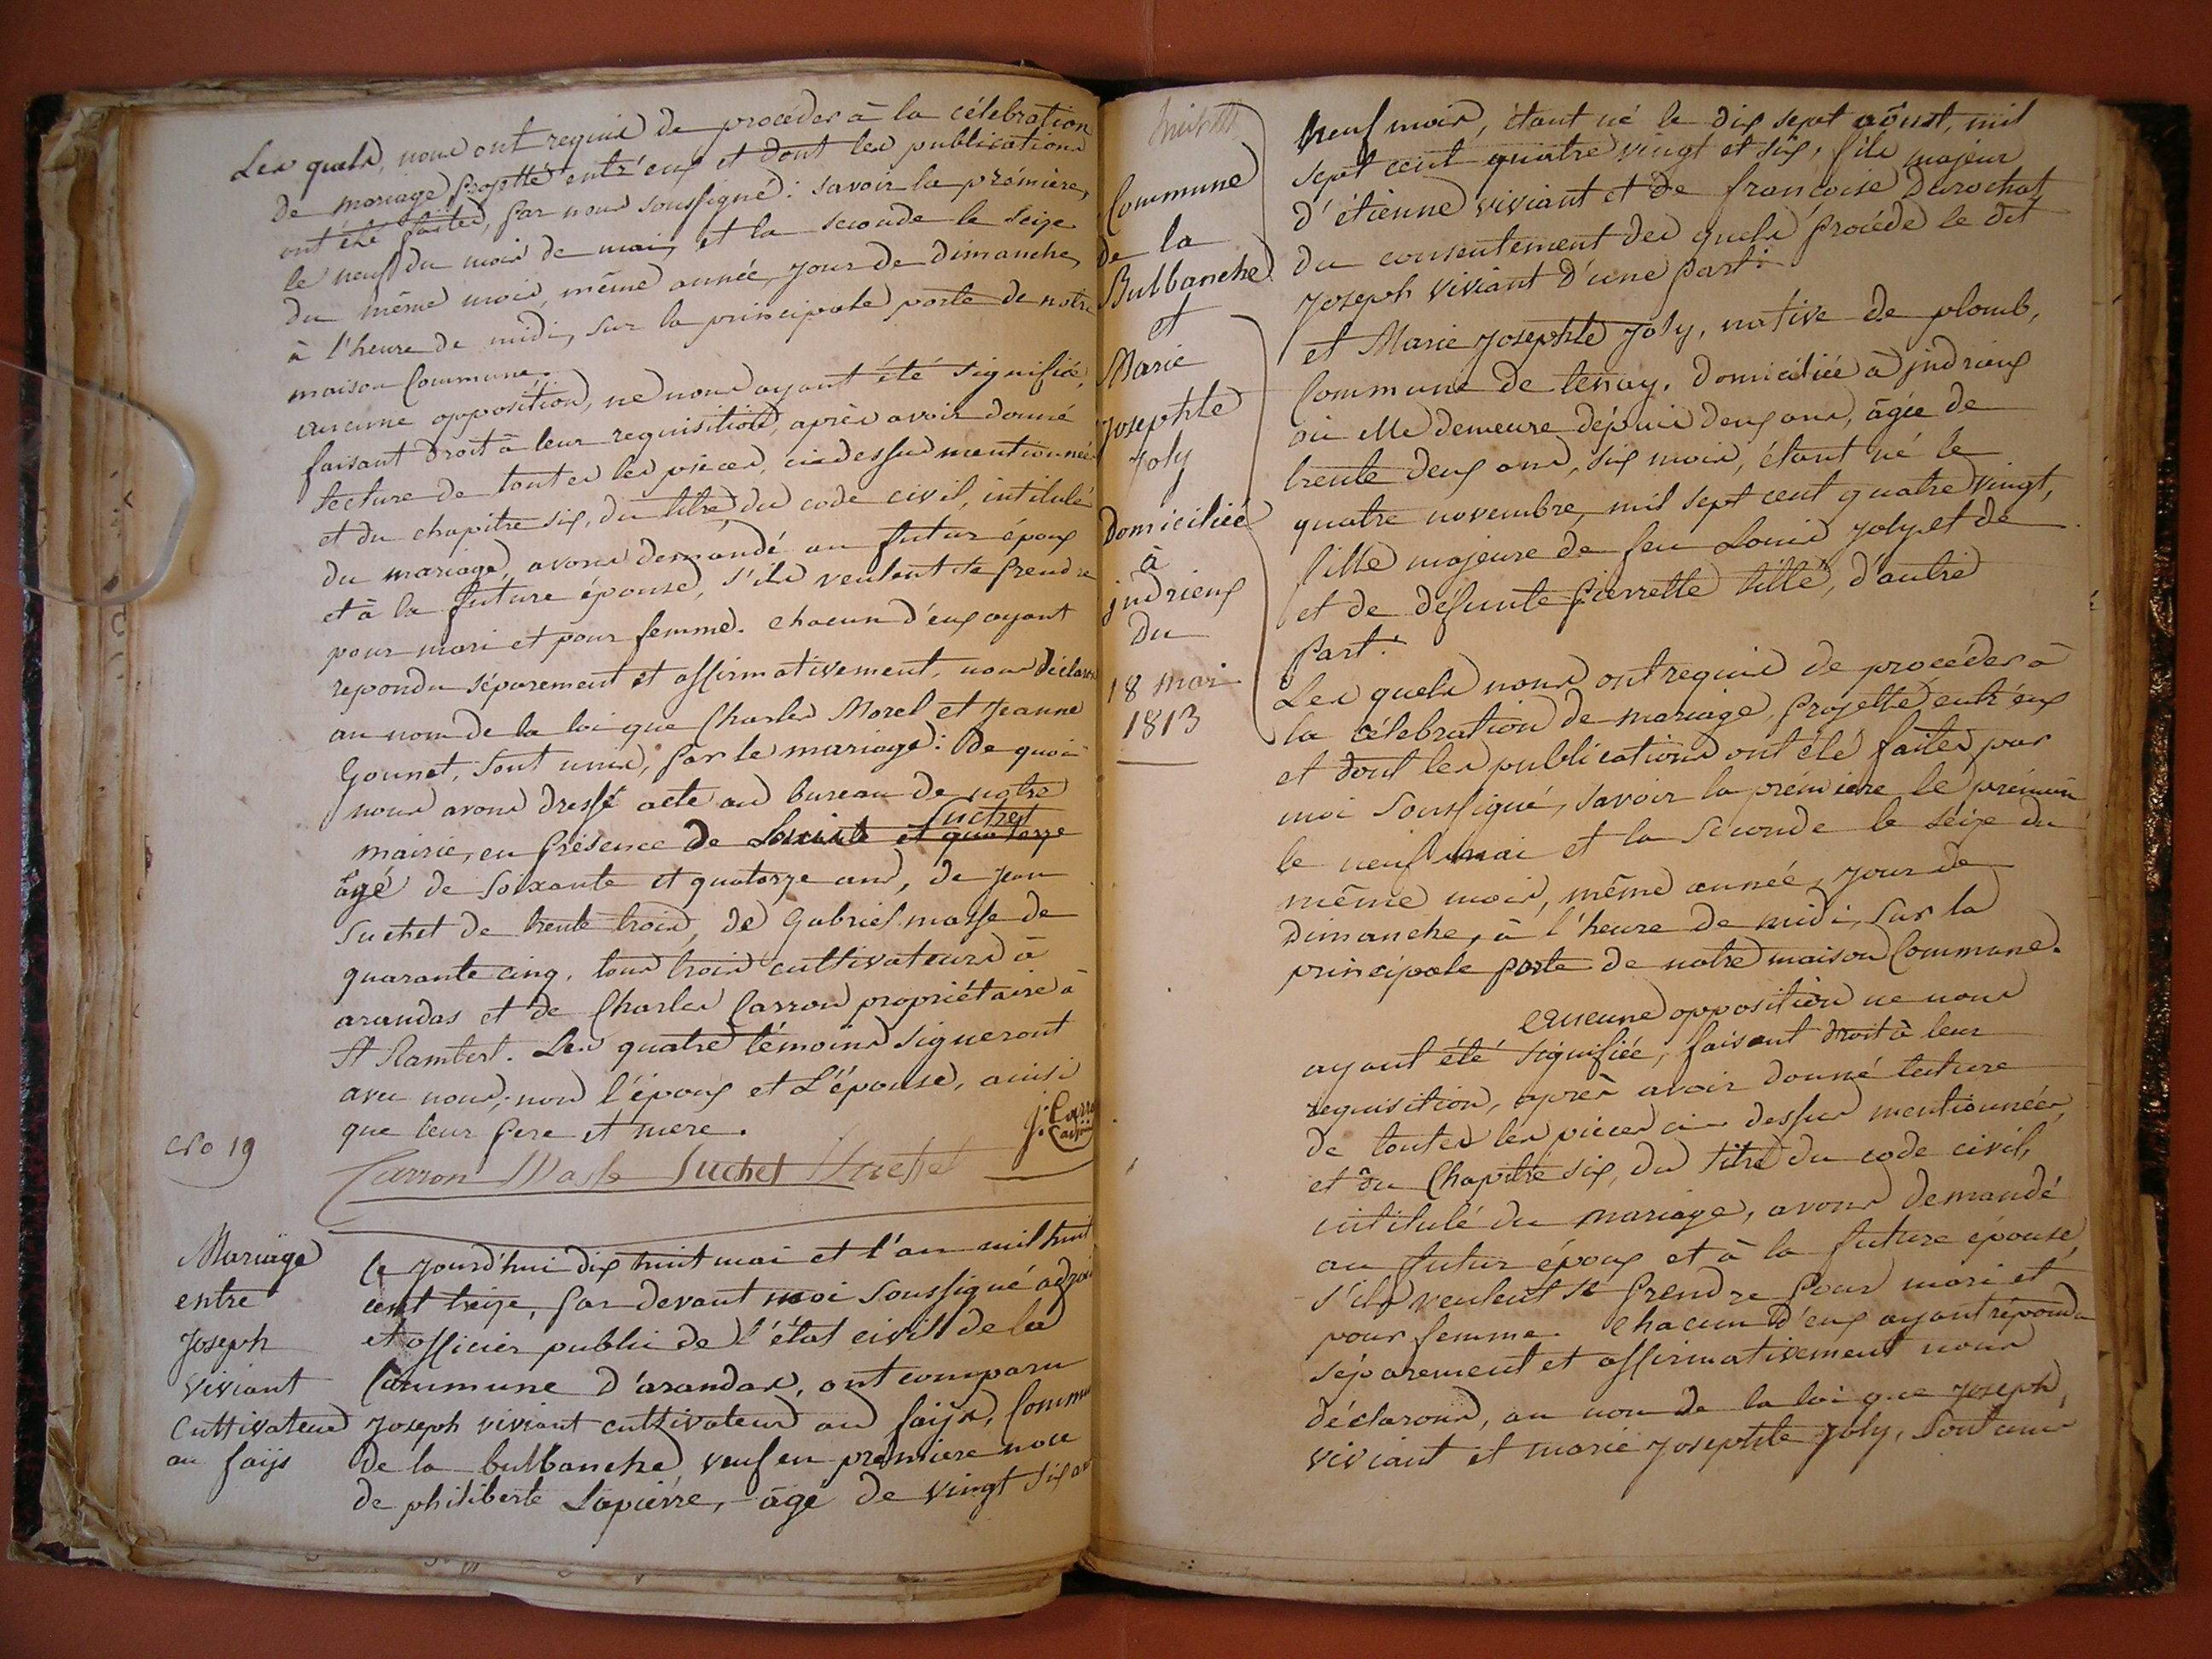 Les quels, nous ont requis de procéder à la célébration
de mariage projetté entr'eux et dont les publications
ont été faites, par nous soussigné : savoir la prémiere,
le neuf du mois de mai, et la seconde le seize
du même mois, même année, jour de dimanche,
à l'heure de midi, sur la principale porte de notre
maison Commune.
aucune opposition, ne nous ayant été signifiée,
faisant droit à leur requisition, après avoir donné
lecture de toutes les pièces, ci dessus mentionnées
et du chapitre six, du titre du code civil, intitulé
du mariage, avons demandé au futur époux
et à la future épouse, s'ils veulent se prendre
pour mari et pour femme. chacun d'eux ayant
repondu séparement et affirmativement, nous déclarons
au nom de la loi que Charles Morel et Jeanne
Gounet, sont unis, par le mariage : De quoi
nous avons dressé acte au bureau de notre
Suchet
mairie, en présence de et quatorze
âgé de soixante et quatorze ans, de jean
Suchet de trente trois, de Gabriel masse de
quarante cinq, tous trois cultivateurs à
arandas et de Charles Carron propriétaire à
St Rambert. Les quatre témoins signeront
avec nous, non l'époux et L'épouse, ainsi
que leur pere et mere.
Carron Masse Suchet Suchet
No 19
Mariage
entre
Joseph
Viviant
Cultivateur
au faijs
Ce jourd'hui dix huit mai et l'an mil huit
cent treize, par devant moi soussigné adjoint
et officier public de l'état civil de la
Commune d'arandas, ont comparu
Joseph viviant cultivateur au faijs, Commune
de la bulbanche veuf en premiere noce
de philiberte Lapierre, âgé de vingt six ans
Commune
de la
Bulbanche
et
Marie
Josephte
Joly
Domiciliée
à
jndrieux
du
18 mai
1813
neuf mois, étant né le dix sept aôust, mil
sept cent quatre vingt et six, fils majeur
d'étienne viviant et de françoise Durochat
du consentement des quels procéde le dit
Joseph viviant d'une part :
et Marie Josephte Joly, native de plomb,
Commune de tenay, domiciliée à jndrieux
où elle demeure dépuis deux ans, âgée de
trente deux ans, six mois, étant né le
quatre novembre, mil sept cent quatre vingt,
fille majeure de feu Louis Joly et de
et de défunte pierrette tillé, d'autre
part :
Les quels nous ont requis de procéder à
la célebration de mariage, projetté entr'eux
et dont les publications ont été faites par
moi soussigné, savoir la prémiere le
le neuf mai et la seconde le seize du
même mois, même année, jour de
dimanche, à l'heure de midi, sur la
principale porte de notre maison Commune.
aucune opposition ne nous
ayant été signifiée, faisant droit à leur
requisition, après avoir donné lecture
de toutes les pièces ci dessus mentionnées,
et du Chapitre six, du titre du code civil,
intitulé du mariage, avons demandé
au futur époux et à la future épouse,
s'ils veulent se prendre pour mari et
pour femme. Chacun d'eux ayant répondu
séparement et affirmativement nous
déclarons, au nom de la loi que Joseph,
viviant et marie Josephte Joly, sont unis